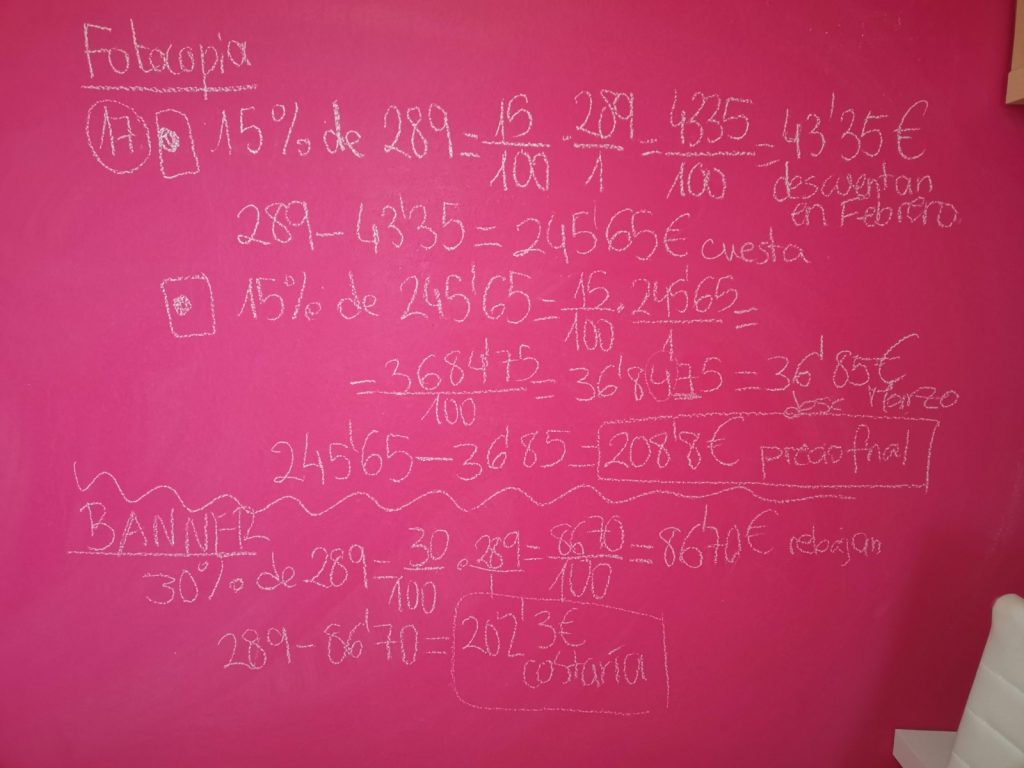 Fotocopia
17 15% de 289 = 15/100 · 289/1 = 4335/100 = 43'35€
descuentan
en Febrero
289 - 43'35 = 245'65€ cuesta
15% de 245'65 = 15/100 · 245'65/1 =
= 3684'75/100 = 36'8475 = 36'85€
desc Marzo
245'65 - 36'85 = 208'8€ precio final
BANNER
30% de 289 = 30/100 · 289/1 = 8670/100 = 86'70€ rebajan
289 - 86'70 = 202'3€
costaría